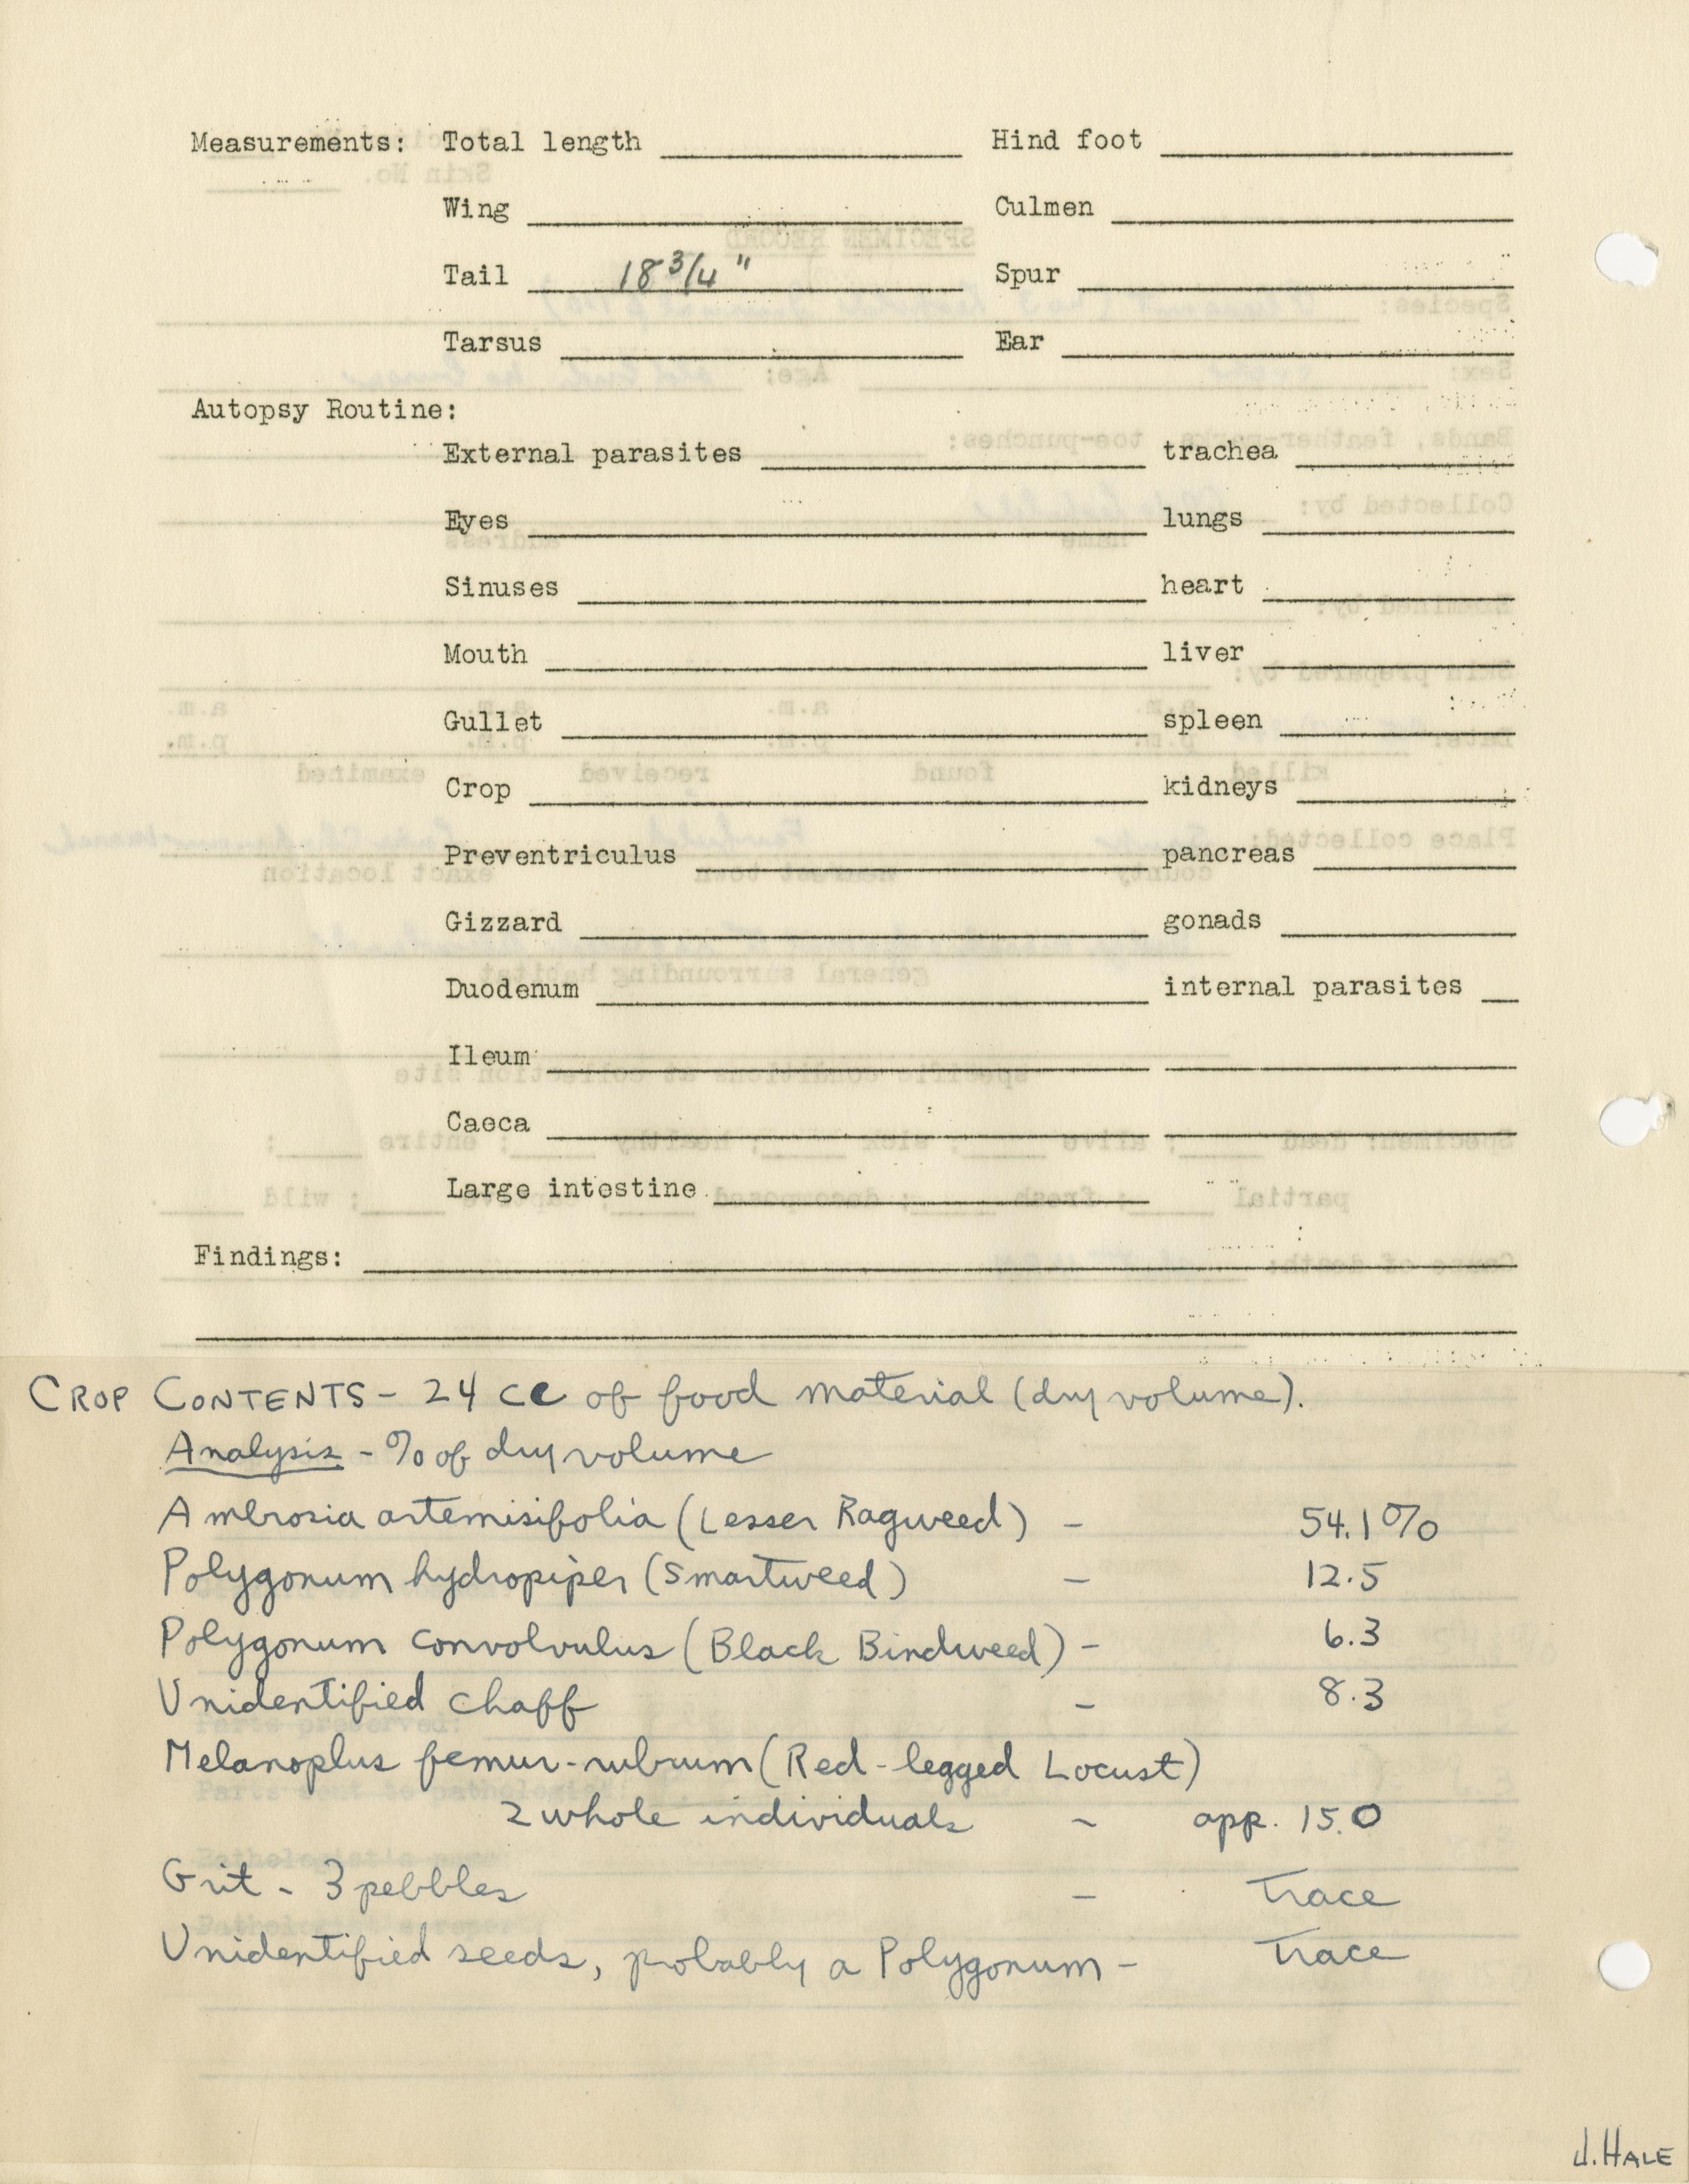 Measurements: Total length Hind foot
Wing Culmen
Tail 18 3/4 " Spur
Tarsus Ear
Autopsy Routine:
External parasites trachea
Eyes lungs
Sinuses heart
Mouth liver
Gullet spleen
Crop kidneys
Preventriculus pancreas
Gizzard gonads
Duodenum internal parasites
Ileum
Caeca
Large intestine
Findings:
CROP CONTENTS - 24 cc of food material (dry volume).
Analysis - % of dry volume
Ambrosia artemisifolia (Lesser Ragweed) - 54.1%
Polygonum hydropiper (Smartweed) - 12.5
Polygonum convolvulus (Black Bindweed) - 6.3
Unidentified chaff - 8.3
Melanoplus femur-rubrum (Red-legged Locust)
2 whole individuals - app. 15.0
Grit - 3 pebbles - Trace
Unidentified seeds, probably a Polygonum - Trace
J. HALE